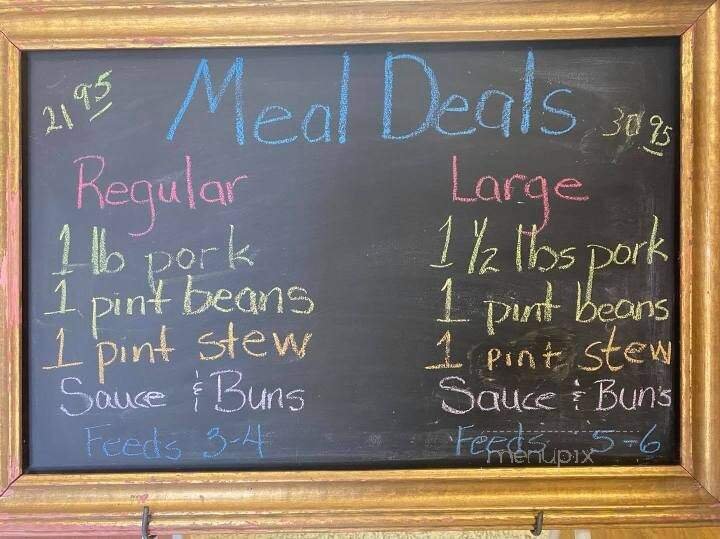 Meal Deals
21 95
30 95
Regular
1 lb pork
1 pint beans
1 pint stew
Sauce & Buns
Feeds 3-4
Large
1 1/2 lbs pork
1 pint beans
1 pint stew
Sauce & Buns
Feeds 5-6
menupix